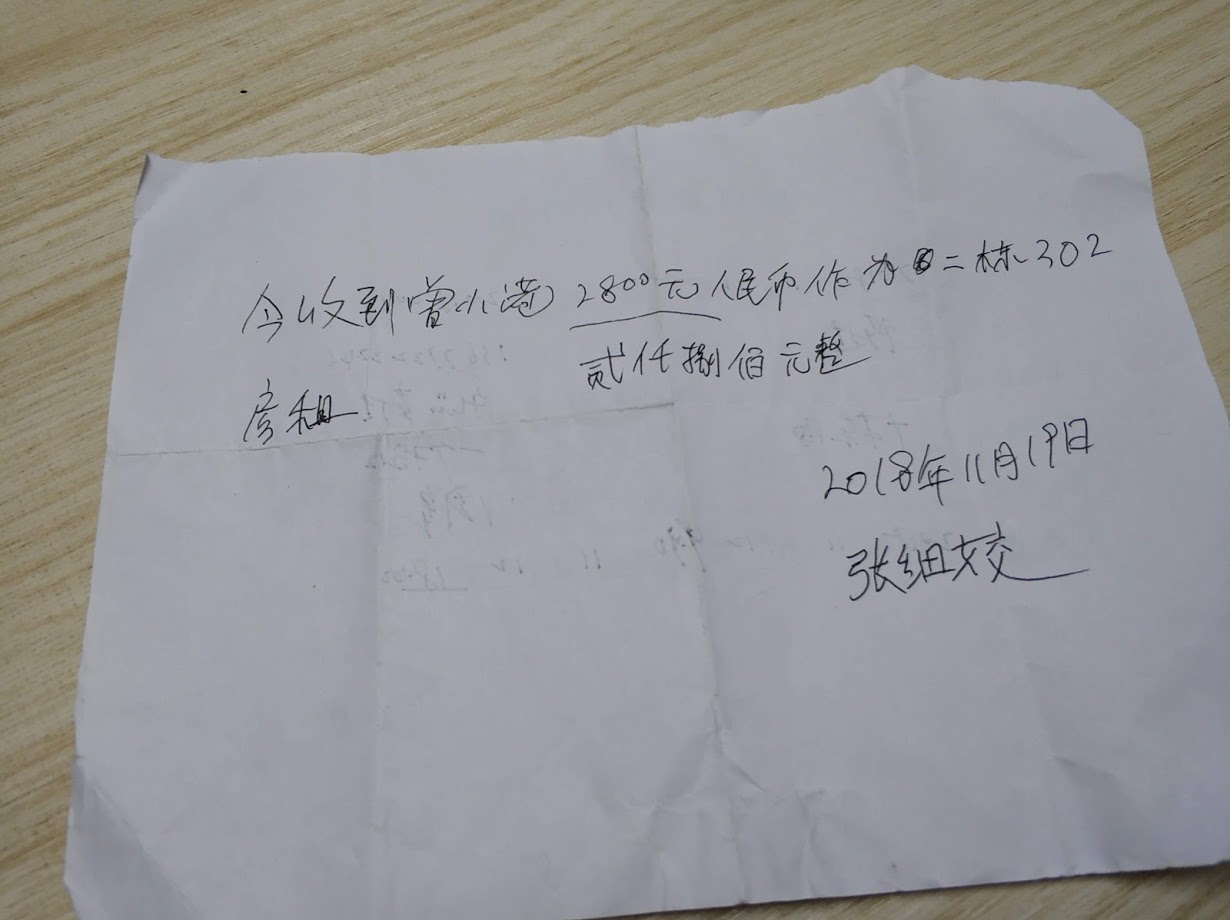 今收到曾小港2800元人民币作为二栋302
贰仟捌佰元整
房租
2018年11月19日
张细姣